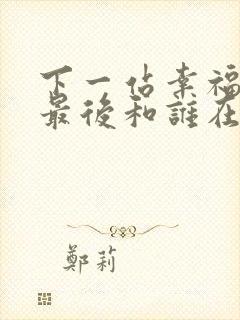 下一站幸福
最後和誰在
鄭莉